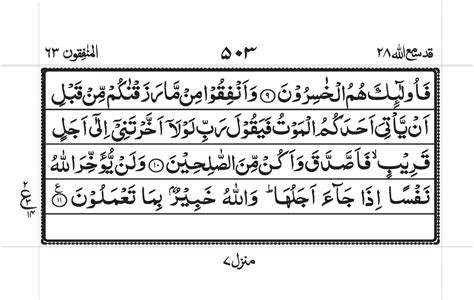 قد سمع الله ۲۸ ۵۰۳ المنٰفقون ۶۳
فَاُولٰٓئِكَ هُمُ الْخٰسِرُوْنَ ۹ وَاَنْفِقُوْا مِنْ مَّا رَزَقْنٰكُمْ مِّنْ قَبْلِ
اَنْ يَّاْتِىَ اَحَدَكُمُ الْمَوْتُ فَيَقُوْلَ رَبِّ لَوْلَاۤ اَخَّرْتَنِىْۤ اِلٰٓى اَجَلٍ
قَرِيْبٍ ۙ فَاَصَّدَّقَ وَاَكُنْ مِّنَ الصّٰلِحِيْنَ ۱۰ وَلَنْ يُّؤَخِّرَ اللّٰهُ
نَفْسًا اِذَا جَآءَ اَجَلُهَا ؕ وَاللّٰهُ خَبِيْرٌۢ بِمَا تَعْمَلُوْنَ ۱۱ ع
۲ ع ۱۴
منزل ۷